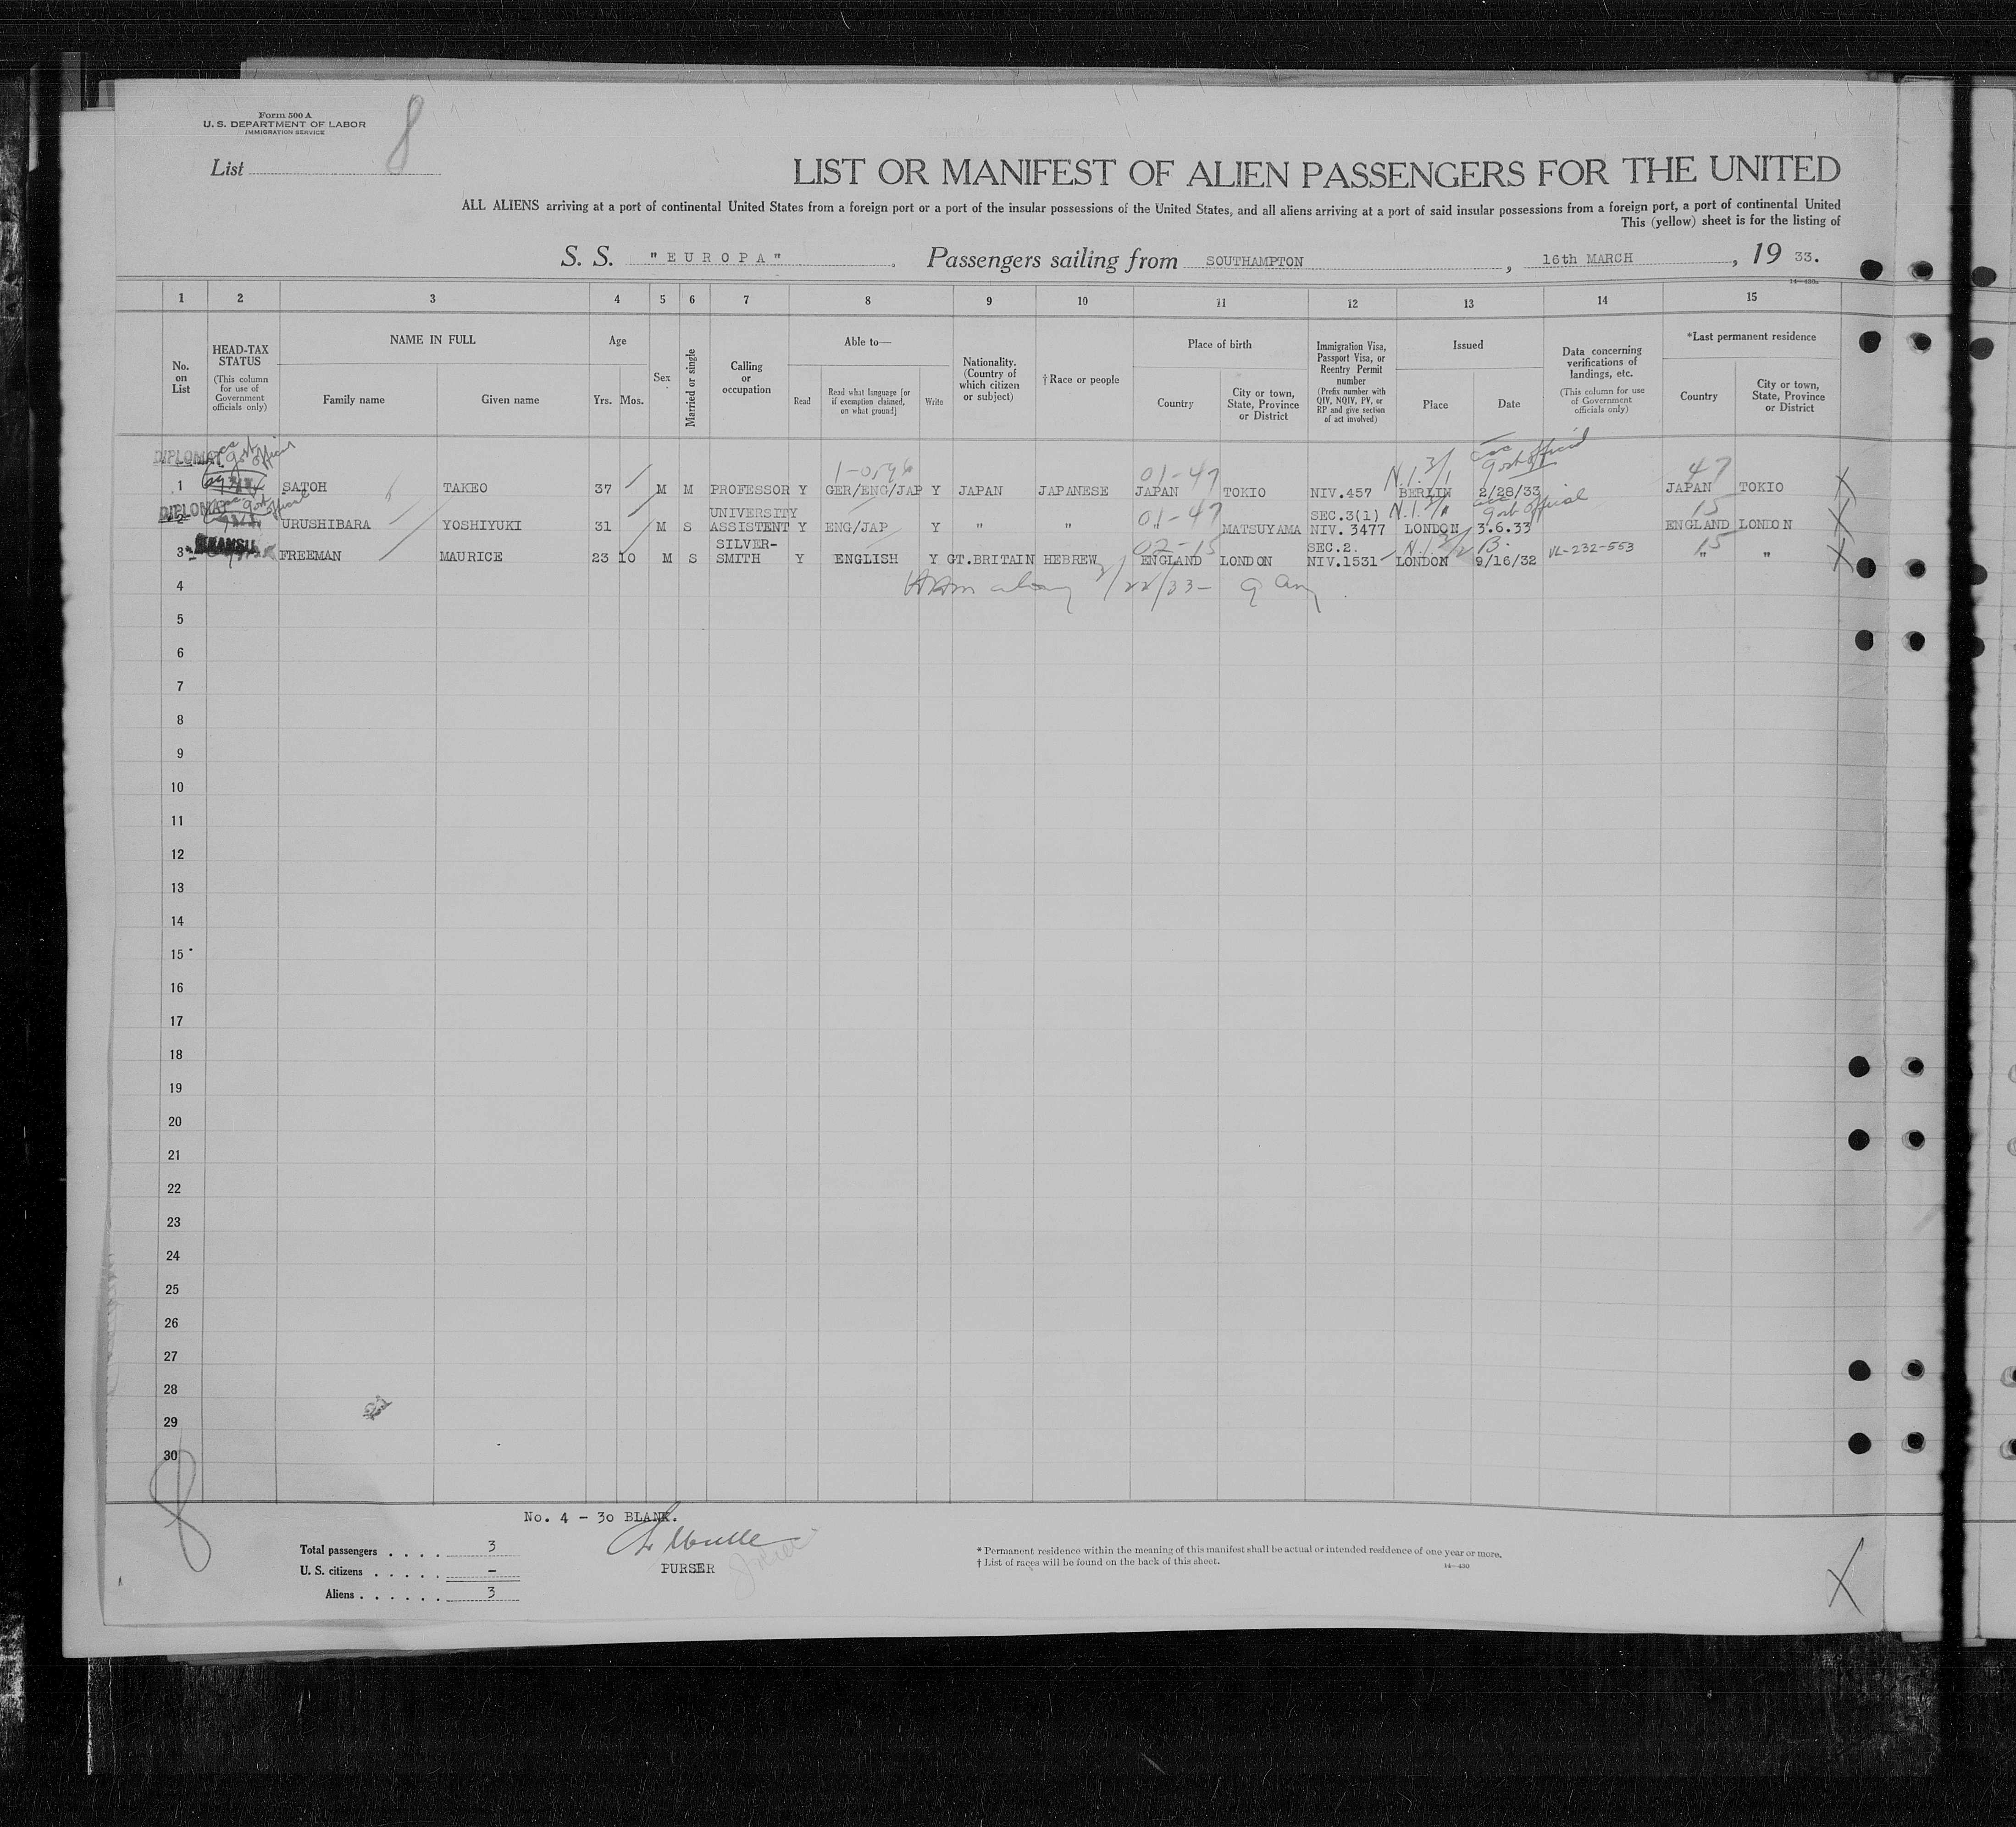 Form 500 A
U. S. DEPARTMENT OF LABOR
IMMIGRATION SERVICE
List 8
LIST OR MANIFEST OF ALIEN PASSENGERS FOR THE UNITED
ALL ALIENS arriving at a port of continental United States from a foreign port or a port of the insular possessions of the United States, and all aliens arriving at a port of said insular possessions from a foreign port, a port of continental United
This (yellow) sheet is for the listing of
S. S. "EUROPA", Passengers sailing from SOUTHAMPTON, 16th MARCH, 19 33.
14-430a
1 2 3 4 5 6 7 8 9 10 11 12 13 14 15
No. on List
HEAD-TAX STATUS (This column for use of Government officials only)
NAME IN FULL
Family name Given name
Age
Yrs. Mos.
Sex
Married or single
Calling or occupation
Able to—
Read Read what language [or if exemption claimed, on what ground] Write
Nationality. (Country of which citizen or subject)
† Race or people
Place of birth
Country City or town, State, Province or District
Immigration Visa, Passport Visa, or Reentry Permit number (Prefix number with QIV, NQIV, PV, or RP and give section of act involved)
Issued
Place Date
Data concerning verifications of landings, etc. (This column for use of Government officials only)
*Last permanent residence
Country City or town, State, Province or District
DIPLOMAT Govt official 01-47 N.I. 3/1 Govt official 47
1 SATOH TAKEO 37 M M PROFESSOR Y GER/ENG/JAP Y JAPAN JAPANESE JAPAN TOKIO NIV.457 BERLIN 2/28/33 JAPAN TOKIO
DIPLOMAT Govt official UNIVERSITY 01-47 SEC.3(1) N.I. Govt official 15
2 URUSHIBARA YOSHIYUKI 31 M S ASSISTENT Y ENG/JAP Y " " " MATSUYAMA NIV. 3477 LONDON 3.6.33 ENGLAND LONDON
SILVER- 02-15 SEC.2. N.I. 3/2 B. 15
3 FREEMAN MAURICE 23 10 M S SMITH Y ENGLISH Y GT.BRITAIN HEBREW ENGLAND LONDON NIV.1531 LONDON 9/16/32 VL-232-553 " "
4 3/22/33-
5
6
7
8
9
10
11
12
13
14
15
16
17
18
19
20
21
22
23
24
25
26
27
28
29
30
8
No. 4 - 30 BLANK.
Total passengers . . . . 3
U. S. citizens . . . . . -
Aliens . . . . . . 3
PURSER
* Permanent residence within the meaning of this manifest shall be actual or intended residence of one year or more.
† List of races will be found on the back of this sheet.
14-430